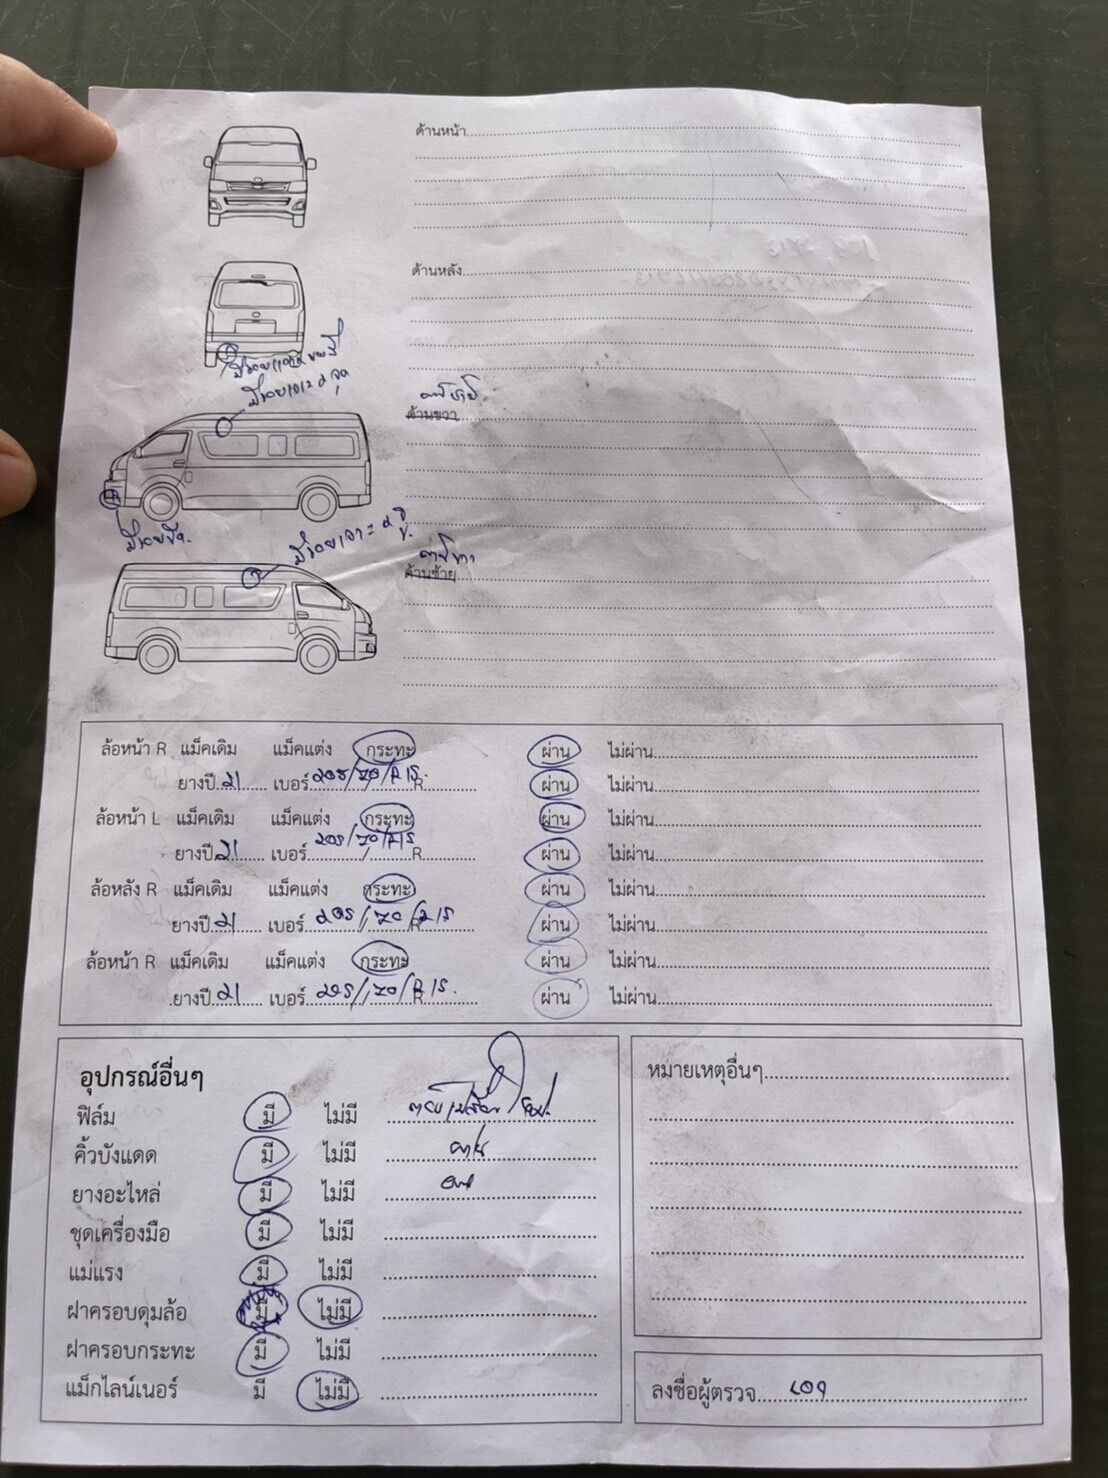 ด้านหน้า
ด้านหลัง
มีรอยเจาะ 2 จุด
ด้านซ้าย
ด้านขวา
มีรอยขีด
มีรอยเจาะ 2 จุ
ด้านขวา
ด้านซ้าย
ล้อหน้า R แม็คเดิม แม็คแต่ง กระทะ ผ่าน ไม่ผ่าน
ยางปี 21 เบอร์ 205/70/R15 R ผ่าน ไม่ผ่าน
ล้อหน้า L แม็คเดิม แม็คแต่ง กระทะ ผ่าน ไม่ผ่าน
ยางปี 21 เบอร์ 205/70/R15 R ผ่าน ไม่ผ่าน
ล้อหลัง R แม็คเดิม แม็คแต่ง กระทะ ผ่าน ไม่ผ่าน
ยางปี 21 เบอร์ 205/70/R15 R ผ่าน ไม่ผ่าน
ล้อหน้า R แม็คเดิม แม็คแต่ง กระทะ ผ่าน ไม่ผ่าน
ยางปี 21 เบอร์ 205/70/R15. R ผ่าน ไม่ผ่าน
อุปกรณ์อื่นๆ
ฟิล์ม มี ไม่มี
คิ้วบังแดด มี ไม่มี
ยางอะไหล่ มี ไม่มี
ชุดเครื่องมือ มี ไม่มี
แม่แรง มี ไม่มี
ฝาครอบดุมล้อ มี ไม่มี
ฝาครอบกระทะ มี ไม่มี
แม็กไลน์เนอร์ มี ไม่มี
หมายเหตุอื่นๆ
ลงชื่อผู้ตรวจ